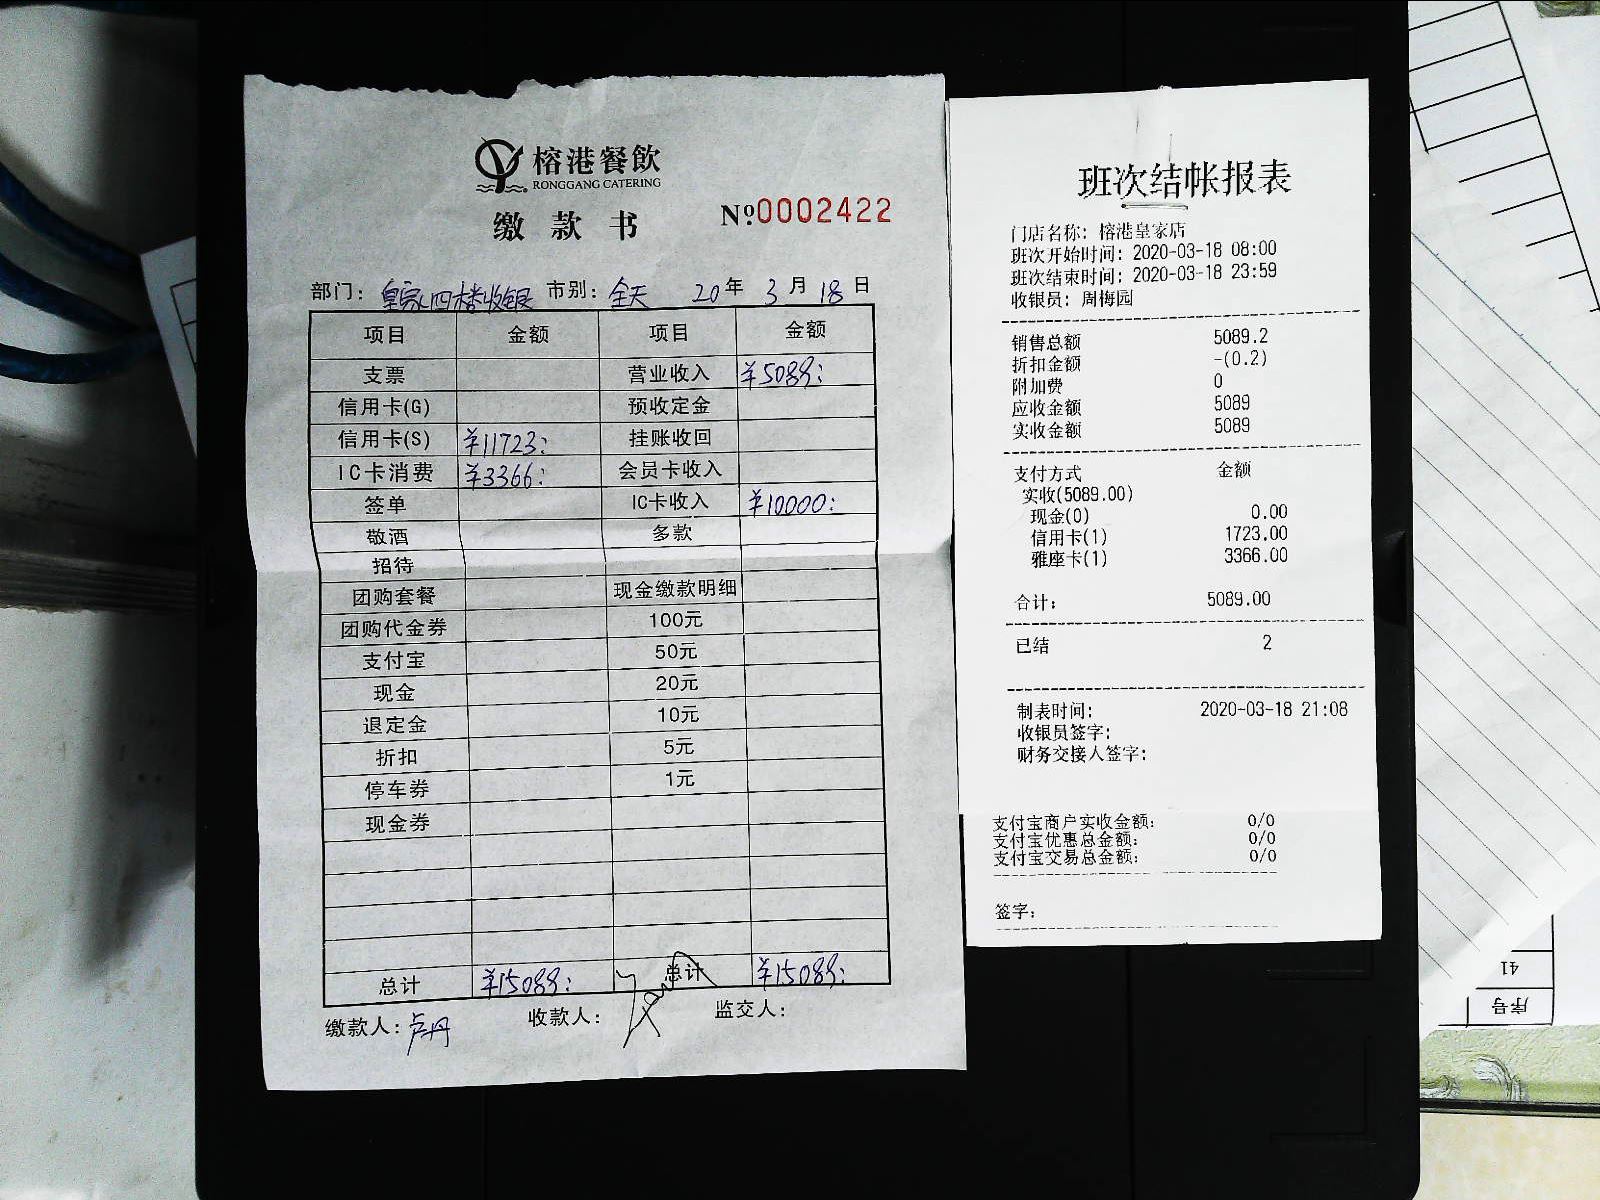 榕港餐飲
RONGGANG CATERING
缴款书
№0002422
部门：皇家四楼收银 市别：全天 20年3月18日
项目 金额 项目 金额
支票 营业收入 ¥5089:
信用卡(G) 预收定金
信用卡(S) ¥11723: 挂账收回
IC卡消费 ¥3366: 会员卡收入
签单 IC卡收入 ¥10000:
敬酒 多款
招待
团购套餐 现金缴款明细
团购代金券 100元
支付宝 50元
现金 20元
退定金 10元
折扣 5元
停车券 1元
现金券
总计 ¥15089: 总计 ¥15089:
缴款人：卢丹 收款人： 监交人：
班次结帐报表
门店名称：榕港皇家店
班次开始时间：2020-03-18 08:00
班次结束时间：2020-03-18 23:59
收银员：周梅园
销售总额 5089.2
折扣金额 -(0.2)
附加费 0
应收金额 5089
实收金额 5089
支付方式 金额
实收(5089.00)
现金(0) 0.00
信用卡(1) 1723.00
雅座卡(1) 3366.00
合计： 5089.00
已结 2
制表时间： 2020-03-18 21:08
收银员签字：
财务交接人签字：
支付宝商户实收金额： 0/0
支付宝优惠总金额： 0/0
支付宝交易总金额： 0/0
签字：
41
序号